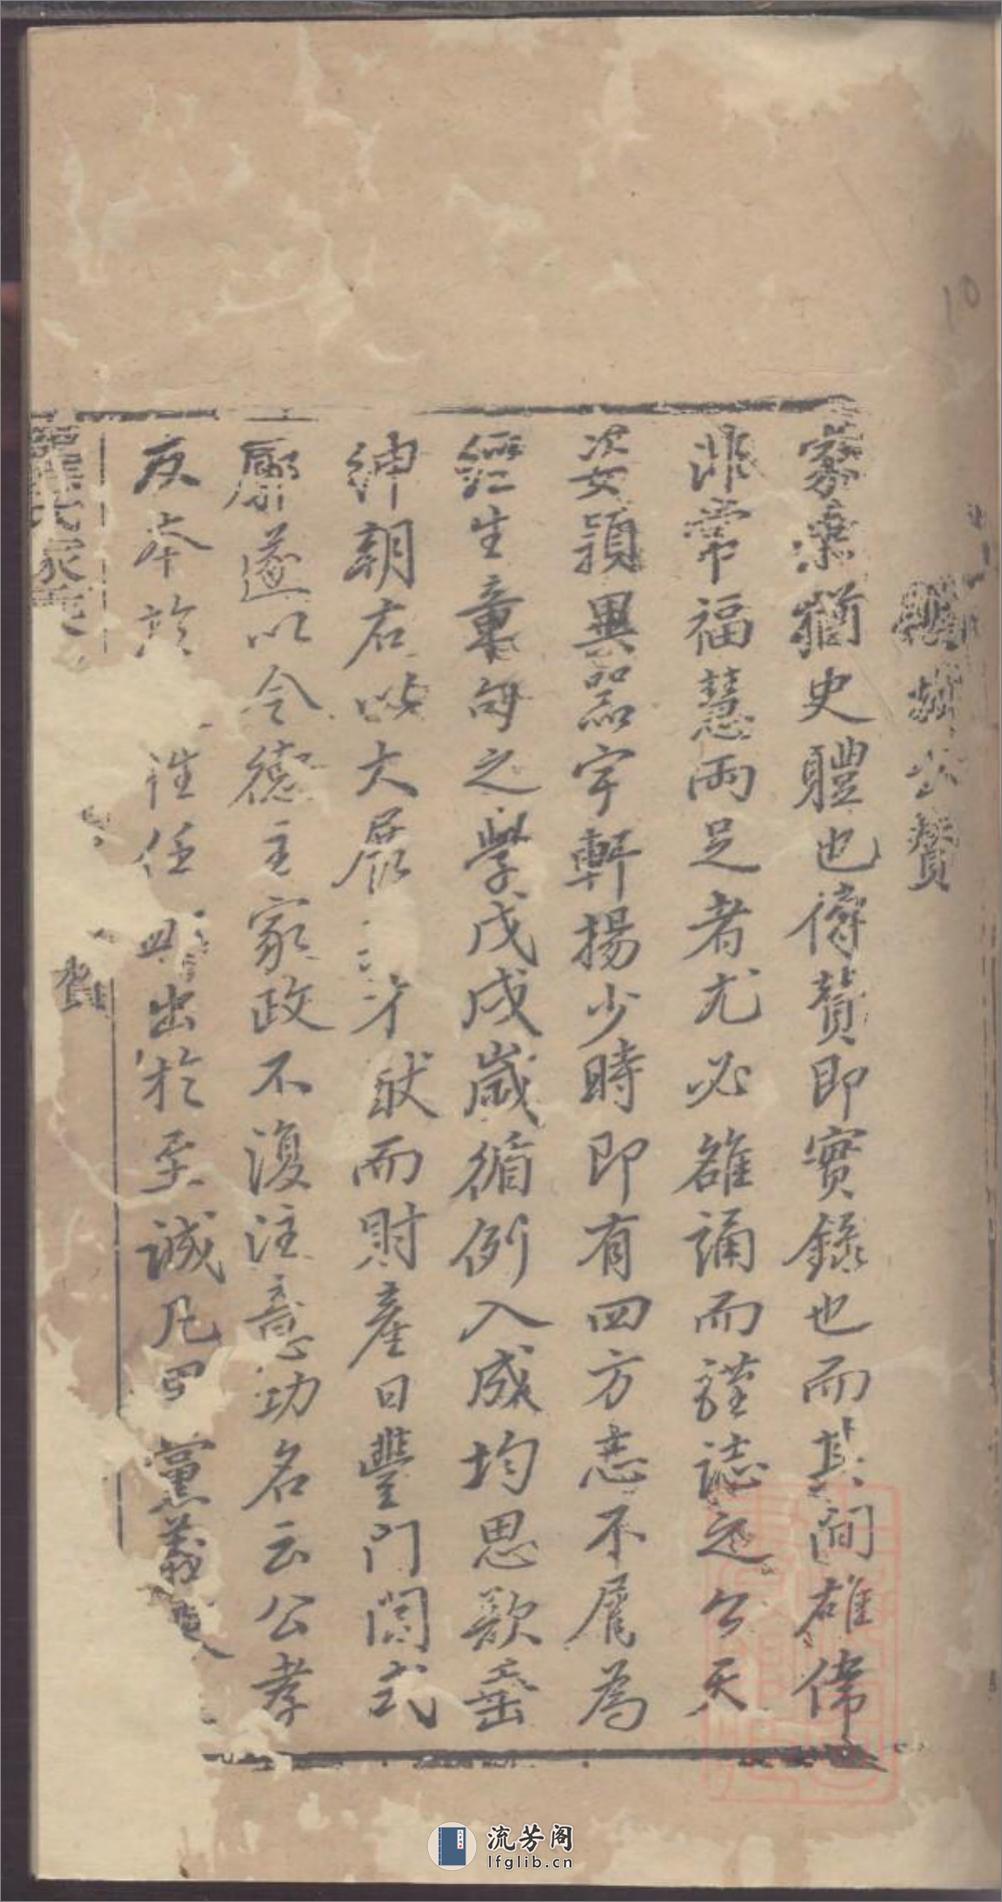 公贊
家乘猶史體也傳贊即實錄也而其間雄偉
非常福慧兩足者尤必雒誦而謹誌之公天
姿頴異器宇軒揚少時即有四方志不屑為
經生章句之學戊戌歲循例入成均思欲垂
紳朝右以大展才猷而財產日豐門閭式
廓遂以令德主家政不復注意功名云公孝
友本於性任出於至誠凡黨義
贊
10
流芳阁
lfglib.cn